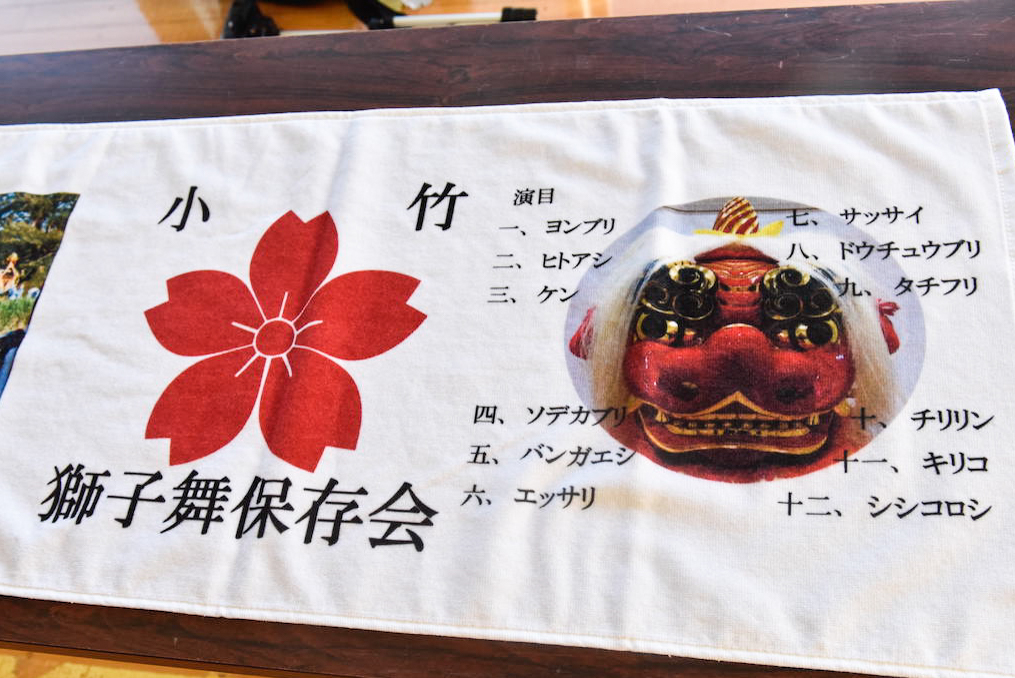 小 竹
獅子舞保存会
演目
一、ヨンブリ
二、ヒトアシ
三、ケン
四、ソデカブリ
五、バンガエシ
六、エッサリ
七、サッサイ
八、ドウチュウブリ
九、タチフリ
十、チリリン
十一、キリコ
十二、シシコロシ